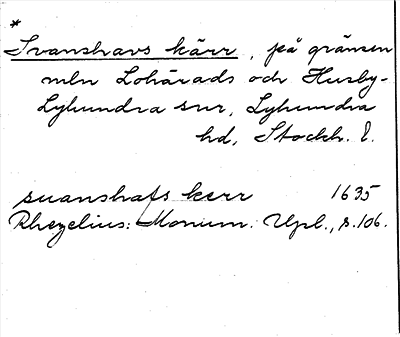 *
Svanshavs kärr, på gränsen
mln Lohärads och Husby-
Lyhundra snr, Lyhundra
hd, Stockh. l.
suanshafs kerr 1635
Rhezelius: Monum. Upl., s. 106.